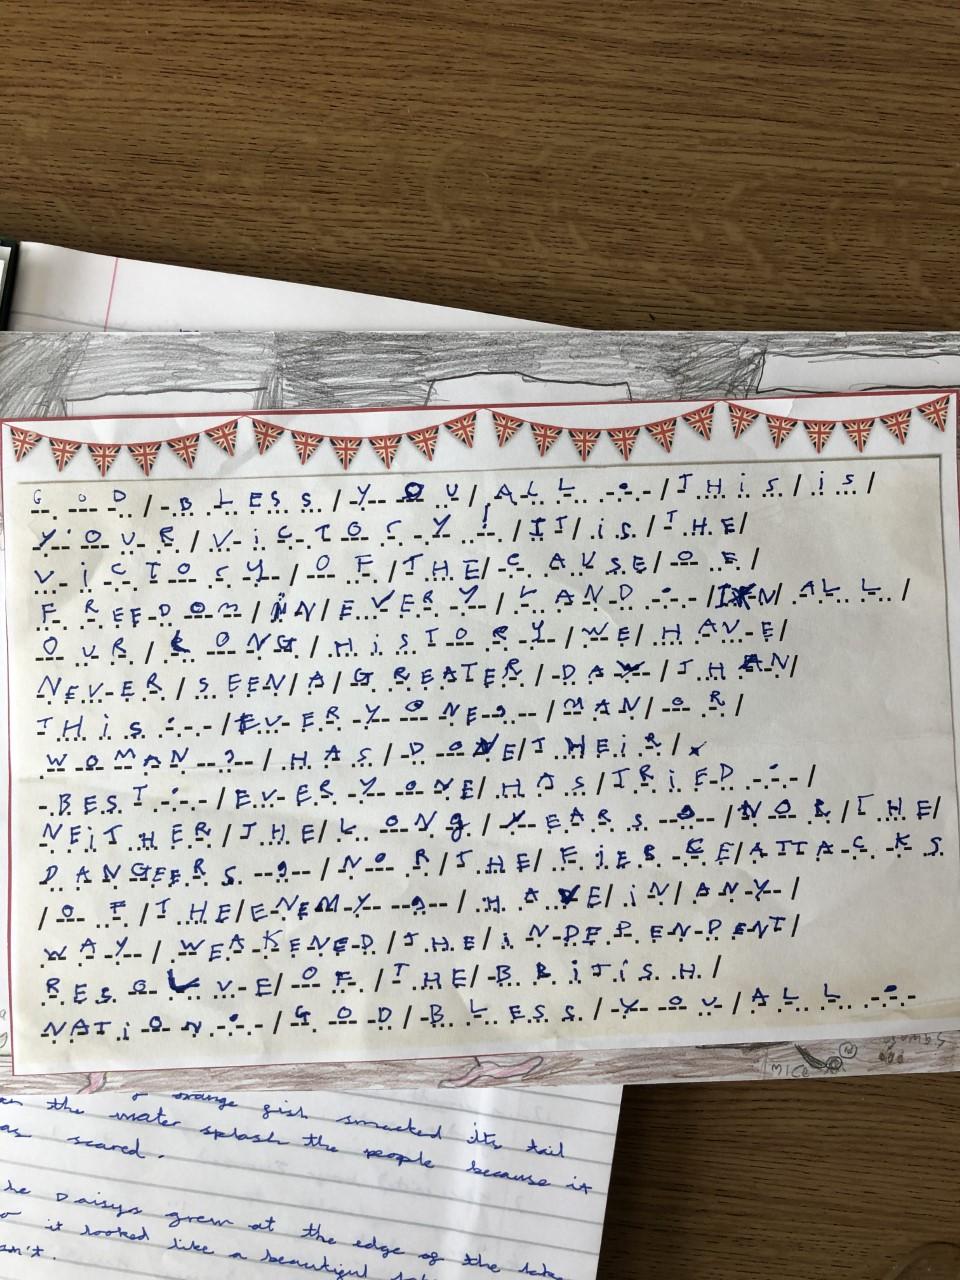 GOD / BLESS / YOU / ALL . / THiS / iS /
YOUR / ViCTOrY ! / IT / iS / THE /
ViCTOrY / OF / THE / CAUSE / OF /
FREEDOM / iN / EVERY / LAND . / IN / ALL /
OUR / LONG / HiSTORY / WE / HAVE /
NEVER / SEEN / A / GREATER / DAY / THAN /
THiS . / EVERYONE , / MAN / OR /
WOMAN , / HAS / DONE / THEiR /
BEST . / EVERYONE / HAS / TRiED . /
NEiTHER / THE / LONg / YEARS , / NOR / THE /
DANGEERS , / NOR / THE / FiERCE / ATTACKS
/ OF / THE / ENEMY , / HAVE / iN / ANY /
WAY / WEAKENED / THE / iNDEPENDENT /
RESOLVE / OF / THE / BRiTiSH /
NATiON . / GOD / BLESS / YOU / ALL .
MICE
orange fish smacked its tail
the water splash the people because it
scared.
Daisys grew at the edge of the
it looked like a beautiful